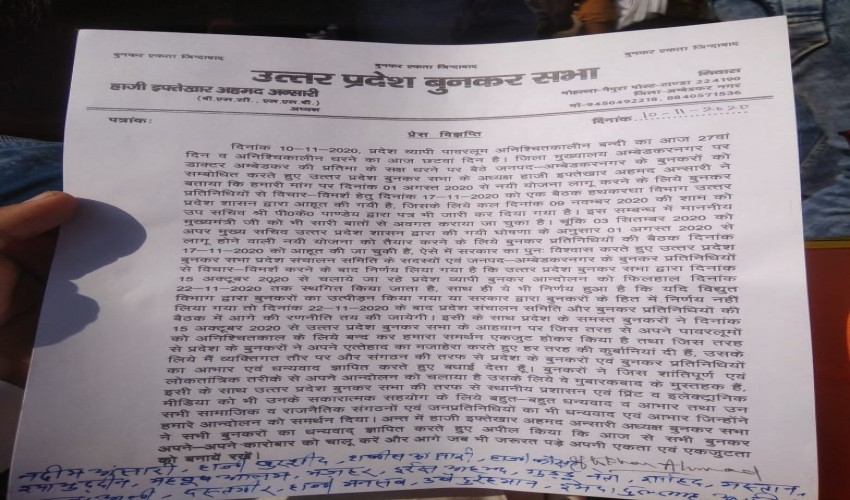 बुनकर एकता जिन्दाबाद बुनकर एकता जिन्दाबाद बुनकर एकता जिन्दाबाद
उत्तर प्रदेश बुनकर सभा
हाजी इफ्तेखार अहमद अन्सारी
(बी.एस.सी., एल.एल.बी.)
अध्यक्ष
निवास
मोहल्ला-नैपुरा पोस्ट-टाण्डा 224190
जिला-अम्बेडकर नगर
मो०-9450492218, 8840571536
पत्रांकः दिनांक 10-11-2020
प्रेस विज्ञप्ति
दिनांक 10-11-2020, प्रदेश व्यापी पावरलूम अनिश्चितकालीन बन्दी का आज 27वां
दिन व अनिश्चिकालीन धरने का आज छटवां दिन है। जिला मुख्यालय अम्बेडकरनगर पर
डाक्टर अम्बेडकर की प्रतिमा के सक्ष धरने पर बैठे जनपद-अम्बेडकरनगर के बुनकरों को
सम्बोधित करते हुए उत्तर प्रदेश बुनकर सभा के अध्यक्ष हाजी इफ्तेखार अहमद अन्सारी ने
बताया कि हमारी मांग पर दिनांक 01 अगस्त 2020 से नयी योजना लागू करने के लिये बुनकर
प्रतिनिधियों से विचार-विमर्श हेतु दिनांक 17-11-2020 को एक बैठक हथकरघा विभाग उत्तर
प्रदेश शासन द्वारा आहूत की गयी है, जिसके लिये कल दिनांक 09 नवम्बर 2020 की शाम को
उप सचिव श्री पी०के० पाण्डेय द्वारा पत्र भी जारी कर दिया गया है। इस सम्बन्ध में माननीय
मुख्यमंत्री जी को भी सारी बातों से अवगत कराया जा चुका है। चूंकि 03 सितम्बर 2020 को
अपर मुख्य सचिव उत्तर प्रदेश शासन द्वारा की गयी घोषणा के अनुसार 01 अगस्त 2020 से
लागू होने वाली नयी योजना को तैयार करने के लिये बुनकर प्रतिनिधियों की बैठक दिनांक
17-11-2020 को आहूत की जा चुकी है, ऐसे में सरकार का पुनः विश्वास करते हुए उत्तर प्रदेश
बुनकर सभा प्रदेश संचालन समिति के सदस्यों एवं जनपद-अम्बेडकरनगर के बुनकर प्रतिनिधियों
से विचार-विमर्श करने के बाद निर्णय लिया गया है कि उत्तर प्रदेश बुनकर सभा द्वारा दिनांक
15 अक्टूबर 2020 से चलाये जा रहे प्रदेश व्यापी बुनकर आन्दोलन को फिलहाल दिनांक
22-11-2020 तक स्थगित किया जाता है, साथ ही ये भी निर्णय हुआ है कि यदि विद्युत
विभाग द्वारा बुनकरों का उत्पीड़न किया गया या सरकार द्वारा बुनकरों के हित में निर्णय नहीं
लिया गया तो दिनांक 22-11-2020 के बाद प्रदेश संचालन समिति और बुनकर प्रतिनिधियों की
बैठक में आगे की रणनीति तय की जायेगी। इसी के साथ प्रदेश के समस्त बुनकरों ने दिनांक
15 अक्टूबर 2020 से उत्तर प्रदेश बुनकर सभा के आहवान पर जिस तरह से अपने पावरलूमों
को अनिश्चितकाल के लिये बन्द कर हमारा समर्थन एकजुट होकर किया है तथा जिस तरह
से प्रदेश के बुनकरों ने अपने एत्तेहाद का मजाहेरा करते हुए हर तरह की कुर्बानियां दी हैं, उसके
लिये मैं व्यक्तिगत तौर पर और संगठन की तरफ से प्रदेश के बुनकरों एवं बुनकर प्रतिनिधियों
का आभार एवं धन्यवाद ज्ञापित करते हुए बधाई देता हूँ। बुनकरों ने जिस शांतिपूर्ण एवं
लोकतांत्रिक तरीके से अपने आन्दोलन को चलाया है उसके लिये वे मुबारकबाद के मुस्तहक हैं,
इसी के साथ उत्तर प्रदेश बुनकर सभा की तरफ से स्थानीय प्रशासन एवं प्रिंट व इलेक्ट्रानिक
मीडिया को भी उनके सकारात्मक सहयोग के लिये बहुत-बहुत धन्यवाद व आभार तथा उन
सभी सामाजिक व राजनैतिक संगठनों एवं जनप्रतिनिधियों का भी धन्यवाद एवं आभार जिन्होंने
हमारे आन्दोलन को समर्थन दिया। अन्त में हाजी इफ्तेखार अहमद अन्सारी अध्यक्ष बुनकर सभा
ने सभी बुनकरों का धन्यवाद ज्ञापित करते हुए अपील किया कि आज से सभी बुनकर
अपने-अपने कारोबार को चालू करें और आगे जब भी जरूरत पड़े अपनी एकता एवं एकजुटता
को बनाये रखें।
Iftekhar Ahmad
नदीम अंसारी, हाजी खुरशीद, शब्बीर अंसारी, हाजी